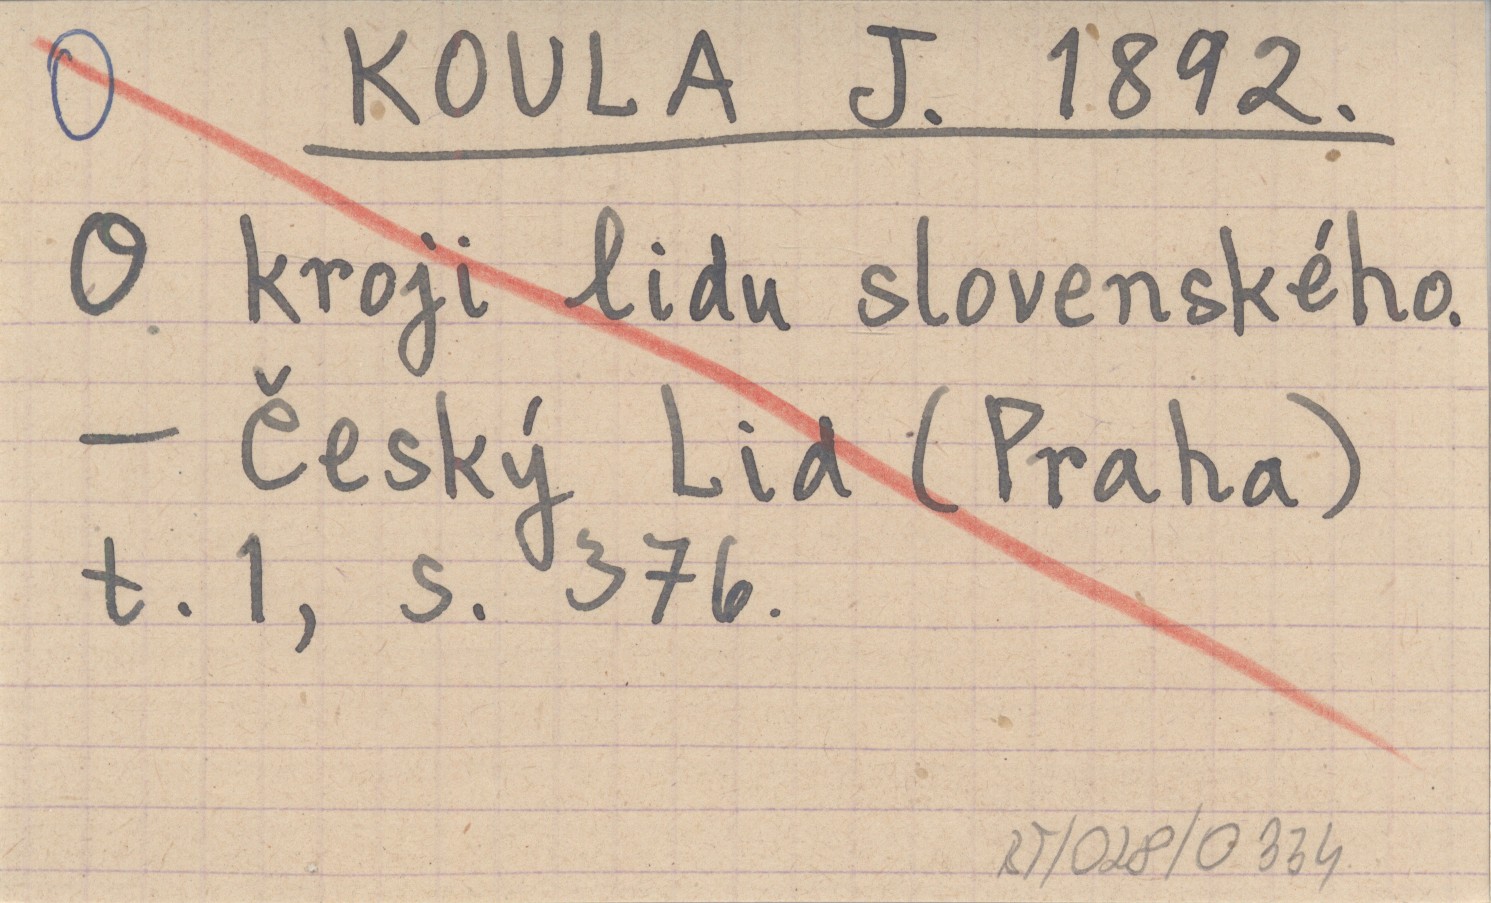 O KOULA J. 1892.
O kroji lidu slovenského.
— Český Lid (Praha)
t. 1, s. 376.
BT/028/O 334